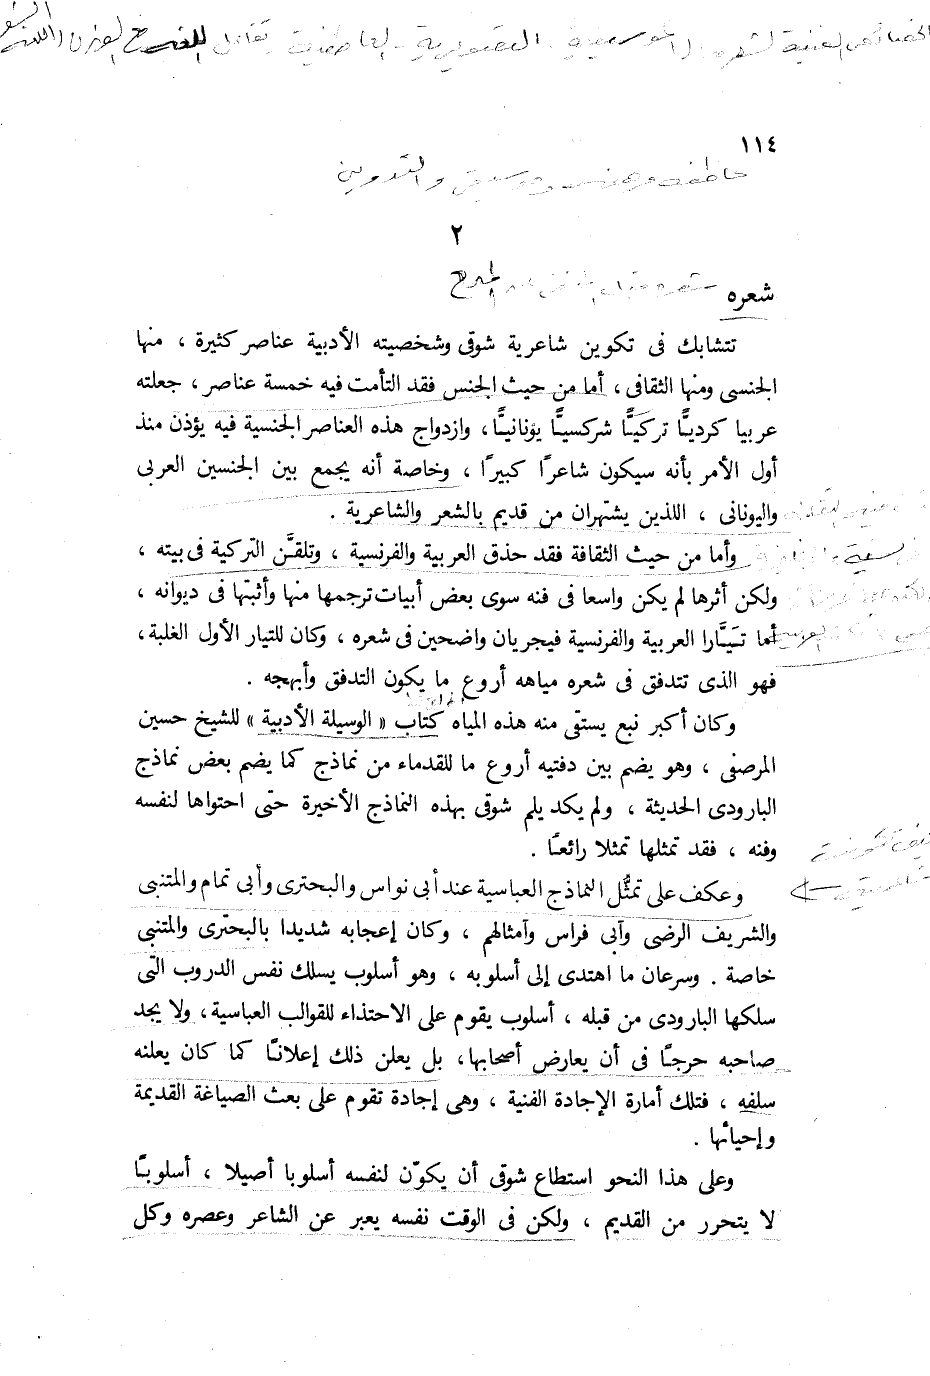 الخصائص الفنية لشعره . الموسيقية . التصويرية . العاطفية تفاعل
١١٤
عاطفة و و موسيقى والتدوين
٢
شعره
تتشابك فى تكوين شاعرية شوقى وشخصيته الأدبية عناصر كثيرة ، منها
الجنسى ومنها الثقافى ، أما من حيث الجنس فقد التأمت فيه خمسة عناصر ، جعلته
عربيا كرديًّا تركيًّا شركسيًّا يونانيًّا ، وازدواج هذه العناصر الجنسية فيه يؤذن منذ
أول الأمر بأنه سيكون شاعرًا كبيرًا ، وخاصة أنه يجمع بين الجنسين العربى
واليونانى ، اللذين يشتهران من قديم بالشعر والشاعرية .
وأما من حيث الثقافة فقد حذق العربية والفرنسية ، وتلقَّن التركية فى بيته ،
ولكن أثرها لم يكن واسعا فى فنه سوى بعض أبيات ترجمها منها وأثبتها فى ديوانه ،
أما تَيَّارا العربية والفرنسية فيجريان واضحين فى شعره ، وكان للتيار الأول الغلبة ،
فهو الذى تتدفق فى شعره مياهه أروع ما يكون التدفق وأبهجه .
وكان أكبر نبع يستقى منه هذه المياه كتاب « الوسيلة الأدبية » للشيخ حسين
المرصفى ، وهو يضم بين دفتيه أروع ما للقدماء من نماذج كما يضم بعض نماذج
البارودى الحديثة ، ولم يكد يلم شوقى بهذه النماذج الأخيرة حتى احتواها لنفسه
وفنه ، فقد تمثلها تمثلا رائعًا .
وعكف على تمثُّل النماذج العباسية عند أبى نواس والبحترى وأبى تمام والمتنبى
والشريف الرضى وأبى فراس وأمثالهم ، وكان إعجابه شديدا بالبحترى والمتنبى
خاصة . وسرعان ما اهتدى إلى أسلوبه ، وهو أسلوب يسلك نفس الدروب التى
سلكها البارودى من قبله ، أسلوب يقوم على الاحتذاء للقوالب العباسية ، ولا يجد
صاحبه حرجًا فى أن يعارض أصحابها ، بل يعلن ذلك إعلانًا كما كان يعلنه
سلفه ، فتلك أمارة الإجادة الفنية ، وهى إجادة تقوم على بعث الصياغة القديمة
وإحيائها .
وعلى هذا النحو استطاع شوقى أن يكوّن لنفسه أسلوبا أصيلا ، أسلوبًا
لا يتحرر من القديم ، ولكن فى الوقت نفسه يعبر عن الشاعر وعصره وكل